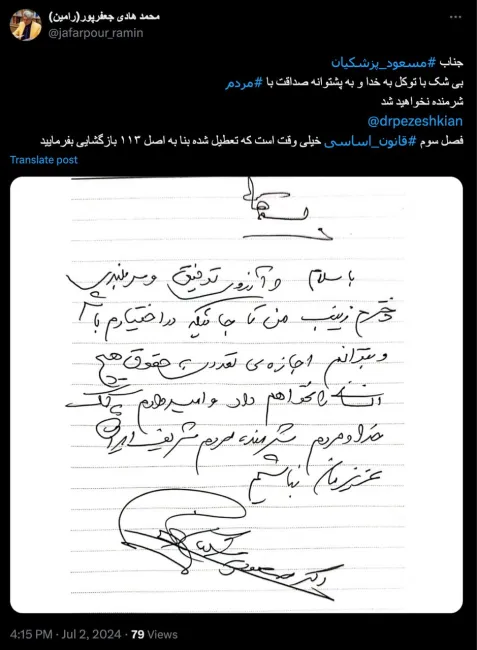 محمد هادی جعفرپور(رامین)
@jafarpour_ramin
جناب #مسعود_پزشکیان
بی شک با توکل به خدا و به پشتوانه صداقت با #مردم
شرمنده نخواهید شد
@drpezeshkian
فصل سوم #قانون_اساسی خیلی وقت است که تعطیل شده بنا به اصل ۱۱۳ بازگشایی بفرمایید
Translate post
با سلام و آرزوی توفیق و سربلندی
دخترم زینب من تا جائیکه در اختیارم باشد
و بتوانم اجازه‌ی تعدی به حقوق هیچ
انسانی را نخواهم داد و امیدوارم به کمک
خدا و مردم شرمنده مردم شریف ایران
عزیزمان نباشیم
دکتر مسعود پزشکیان
4:15 PM · Jul 2, 2024 · 79 Views